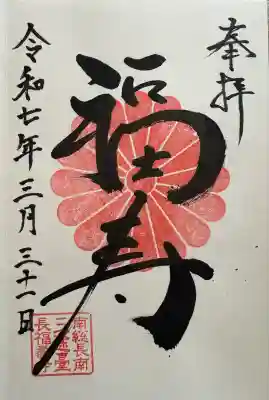 奉拝
福寿
令和七年三月三十一日
南総長南
三途臺
長福壽寺